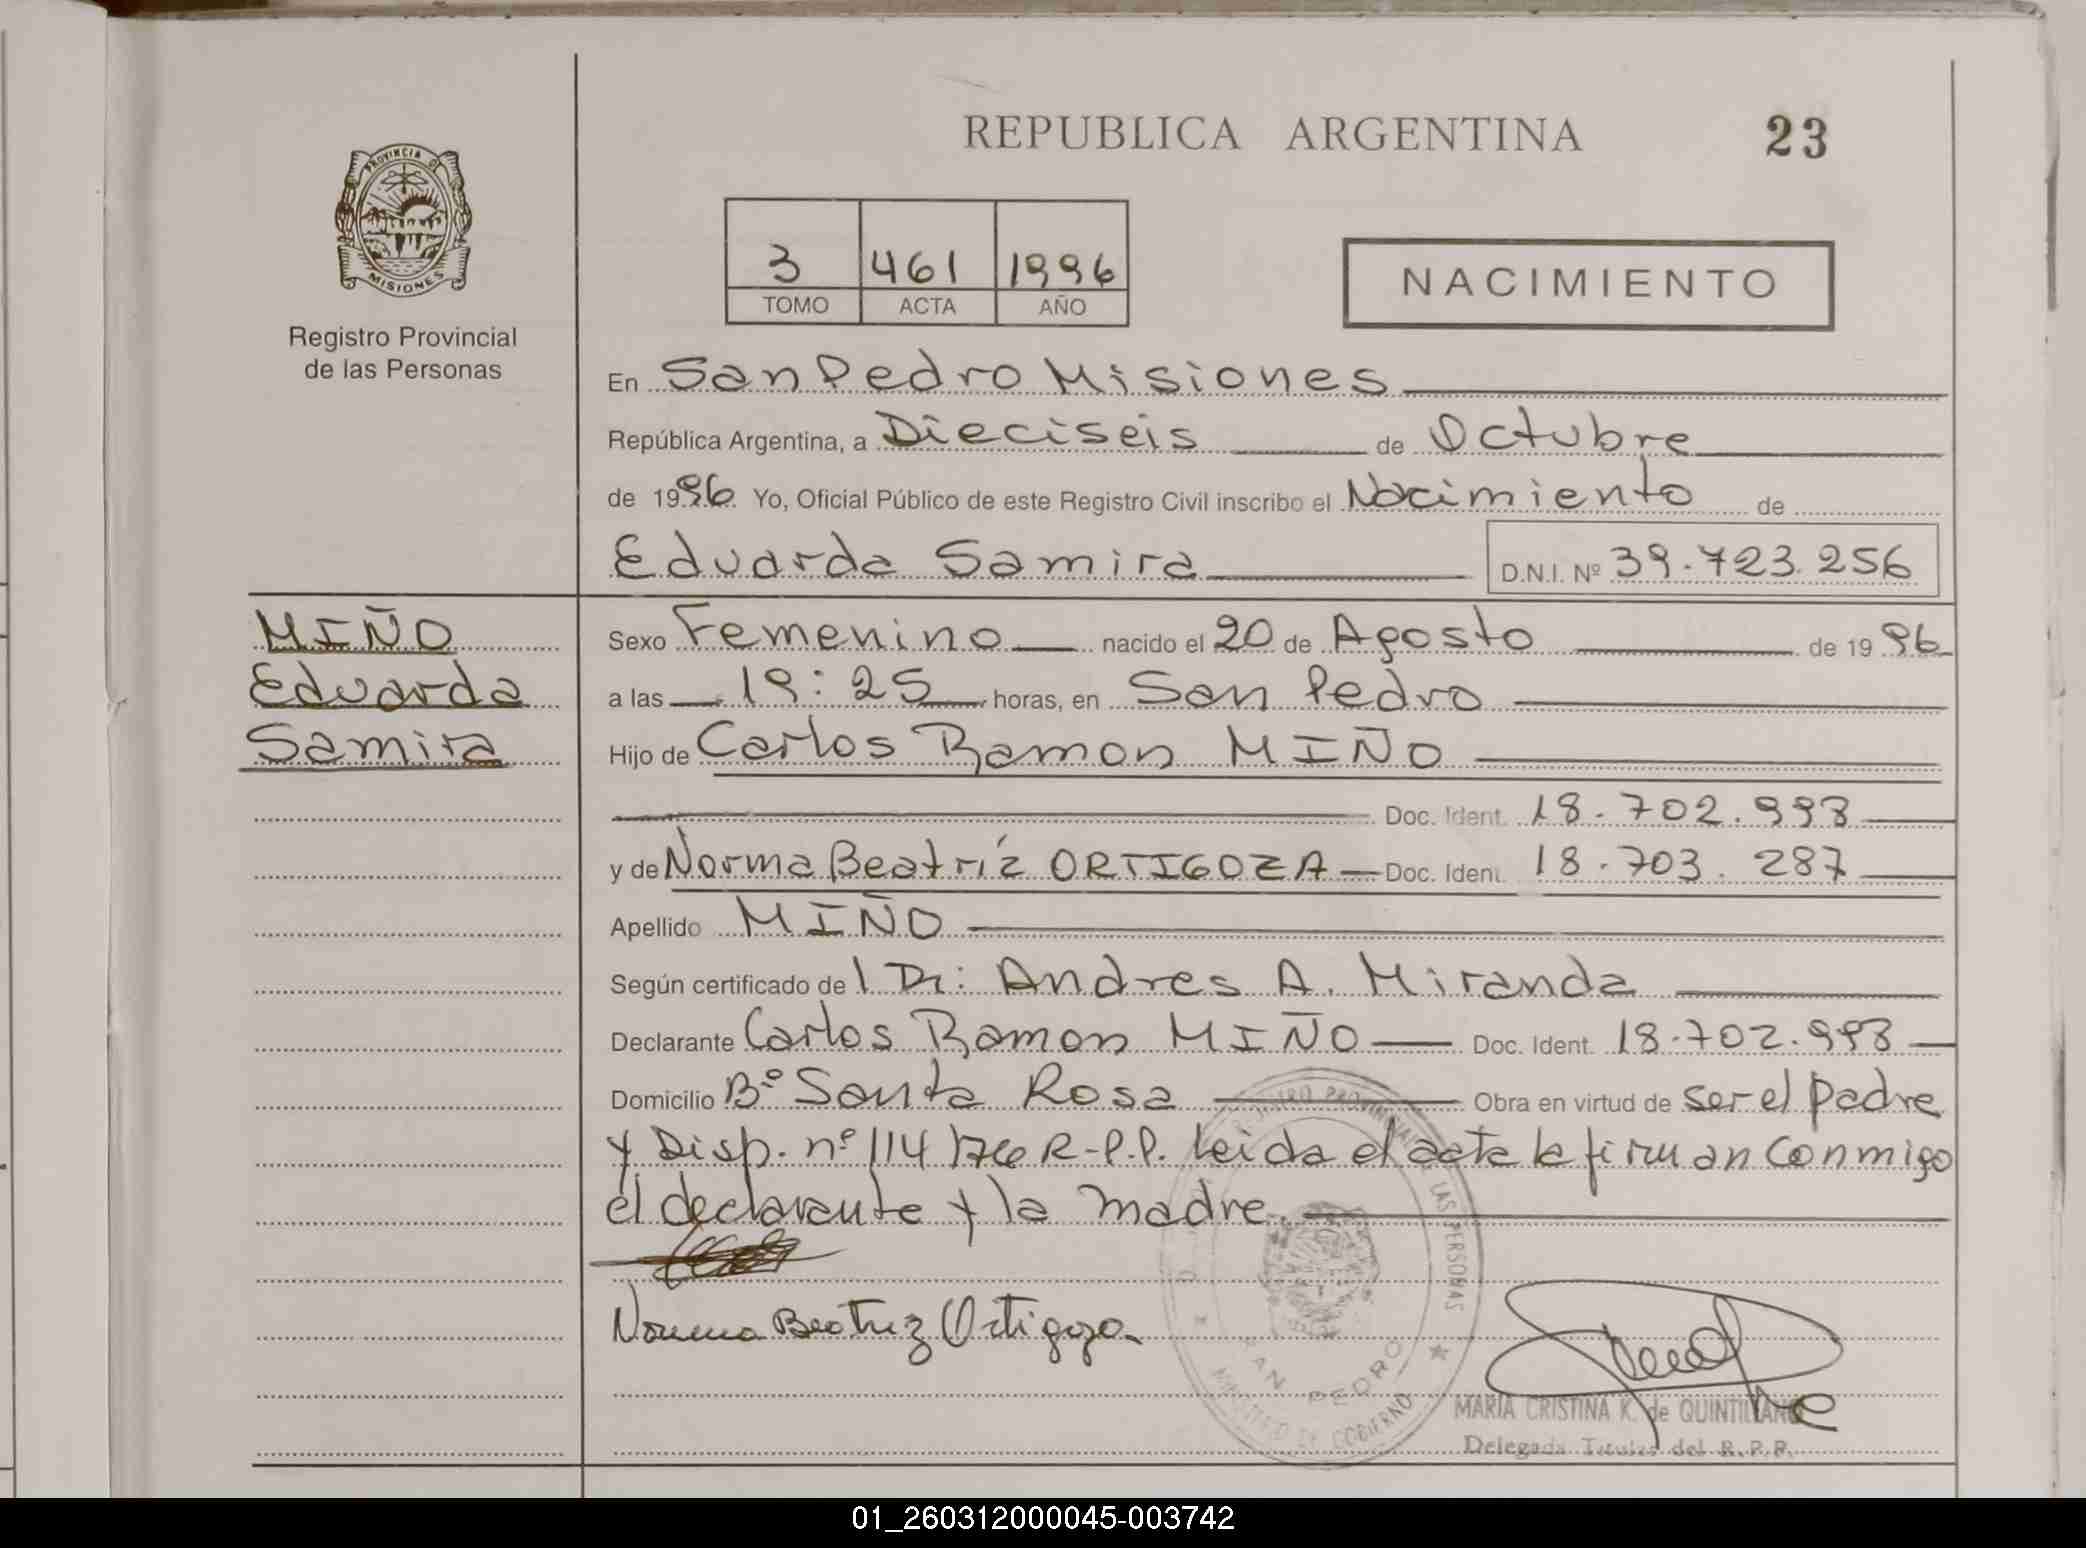 REPUBLICA ARGENTINA
23
PROVINCIA DE
MISIONES
Registro Provincial
de las Personas
3 461 1996
TOMO ACTA AÑO
NACIMIENTO
En San Pedro Misiones
República Argentina, a Dieciseis de Octubre
de 1996 Yo, Oficial Público de este Registro Civil inscribo el Nacimiento de
Eduarda Samira D.N.I. Nº 39.723.256
MIÑO
Eduarda
Samira
Sexo Femenino nacido el 20 de Agosto de 1996
a las 19:25 horas, en San Pedro
Hijo de Carlos Ramon MIÑO
Doc. Ident. 18.702.993
y de Norma Beatríz ORTIGOZA Doc. Ident. 18.703.287
Apellido MIÑO
Según certificado de l Dr: Andres A. Miranda
Declarante Carlos Ramon MIÑO Doc. Ident. 18.702.993
Domicilio Bº Santa Rosa Obra en virtud de ser el padre
y Disp. nº 114/76 R-P.P. Leida el acta la firman conmigo
el declarante y la madre.
Norma Beatriz Ortigoza
REGISTRO PROVINCIAL DE LAS PERSONAS
SAN PEDRO
MINISTERIO DE GOBIERNO
MARIA CRISTINA K. de QUINTILLAN
Delegada Titular del R.P.P.
01_260312000045-003742